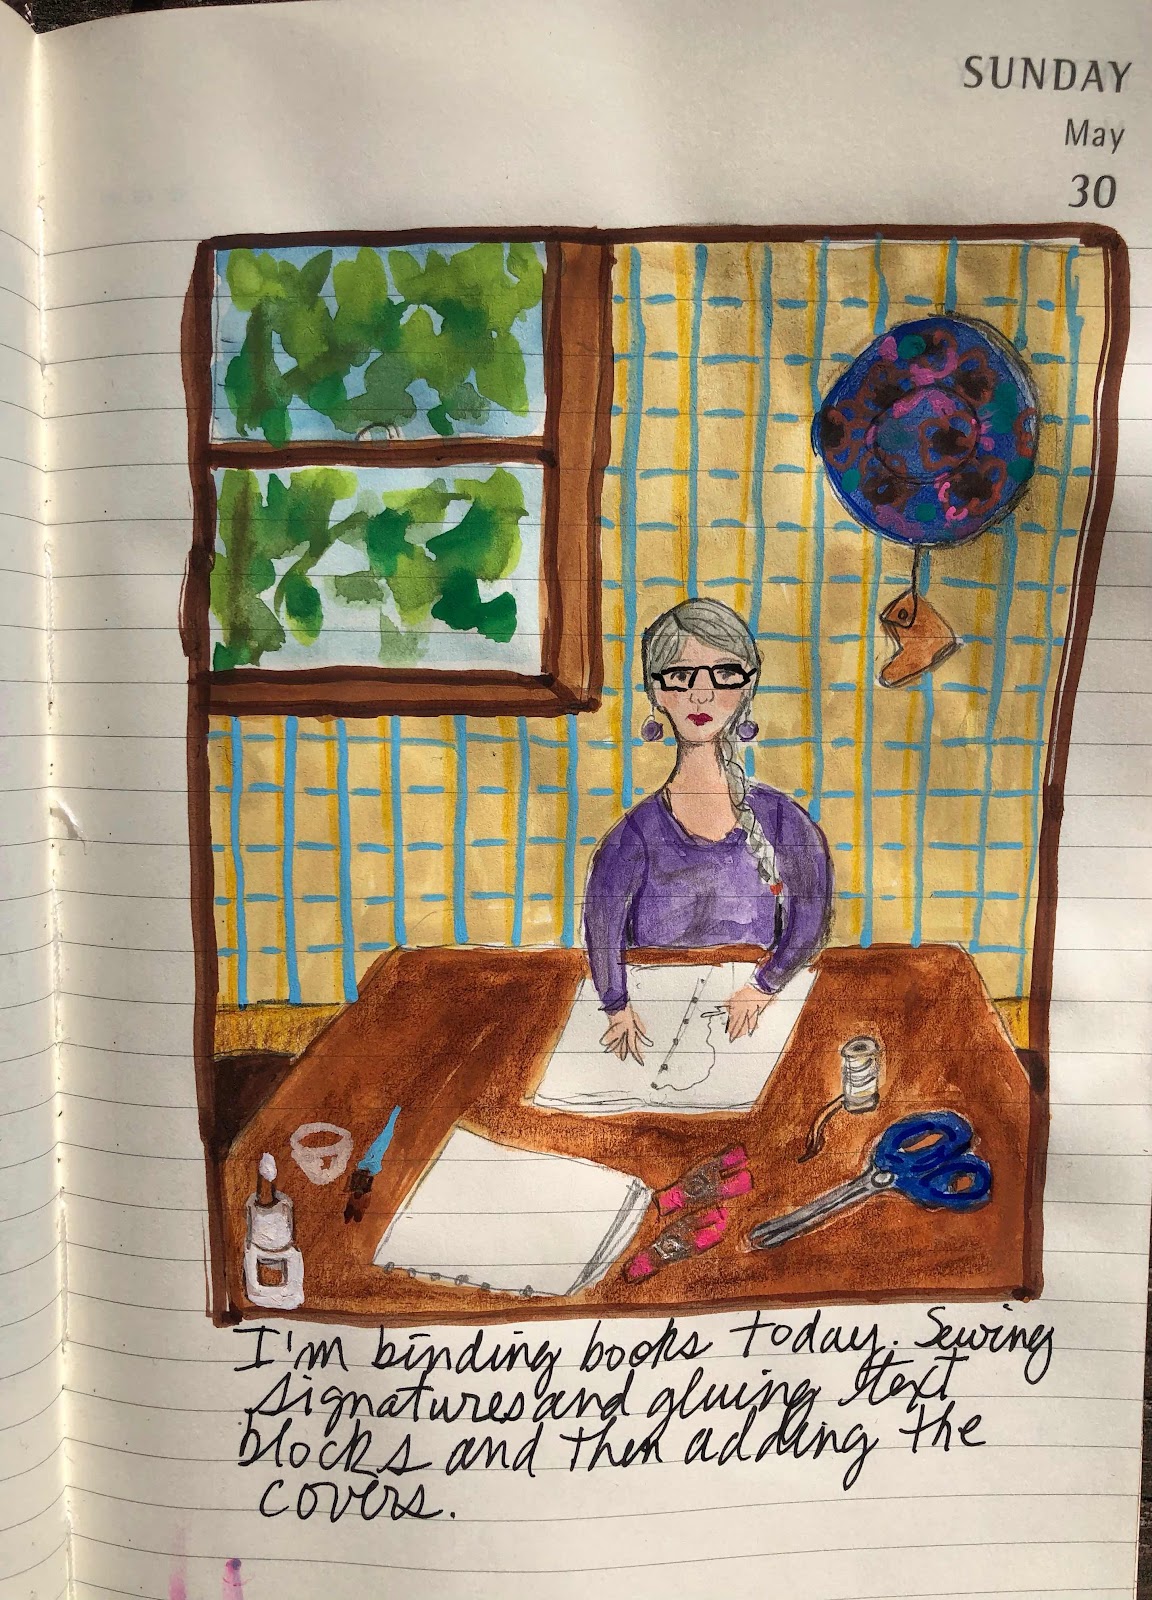 SUNDAY
May
30
I'm binding books today. Sewing
signatures and gluing text
blocks and then adding the
covers.